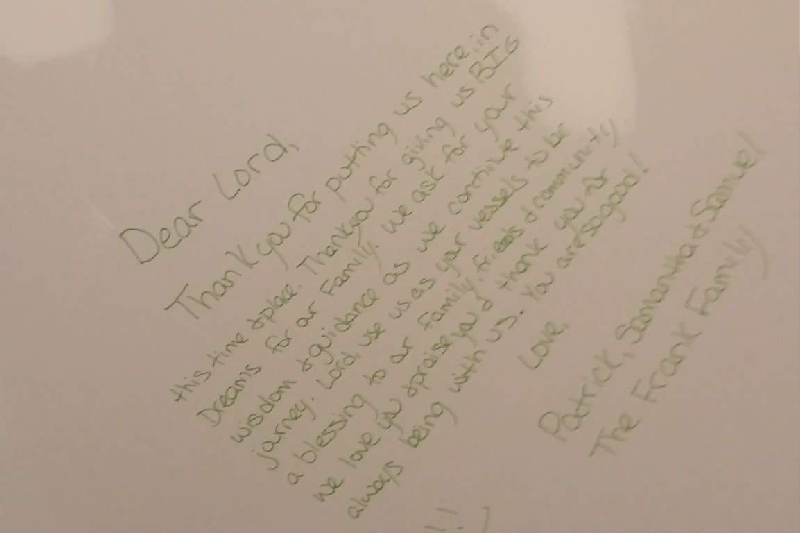 Dear Lord,
Thank you for putting us here in
this time & place. Thank you for giving us BIG
Dreams for our Family. We ask for your
wisdom & guidance as we continue this
journey. Lord, use us as your vessels to be
a blessing to our family, friends & community
we love you & praise you & thank you for
always being with us. You are so good!
Love,
Patrick, Samantha & Samuel
The Frank Family